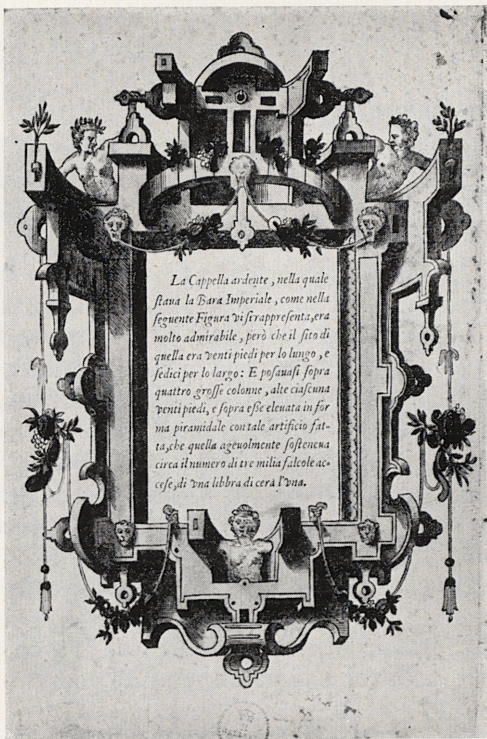 La Cappella ardente, nella quale
ſtaua la Bara Imperiale, come nella
ſeguente Figura vi ſi rappreſenta, era
molto admirabile, però che il ſito di
quella era venti piedi per lo lungo, e
ſedici per lo largo: E poſauaſi ſopra
quattro groſſe colonne, alte ciaſcuna
venti piedi, e ſopra eſſe eleuata in for
ma piramidale con tale artificio fat-
ta, che quella ageuolmente ſoſteneua
circa il numero di tre milia falcole ac-
ceſe, di vna libbra di cera l'vna.